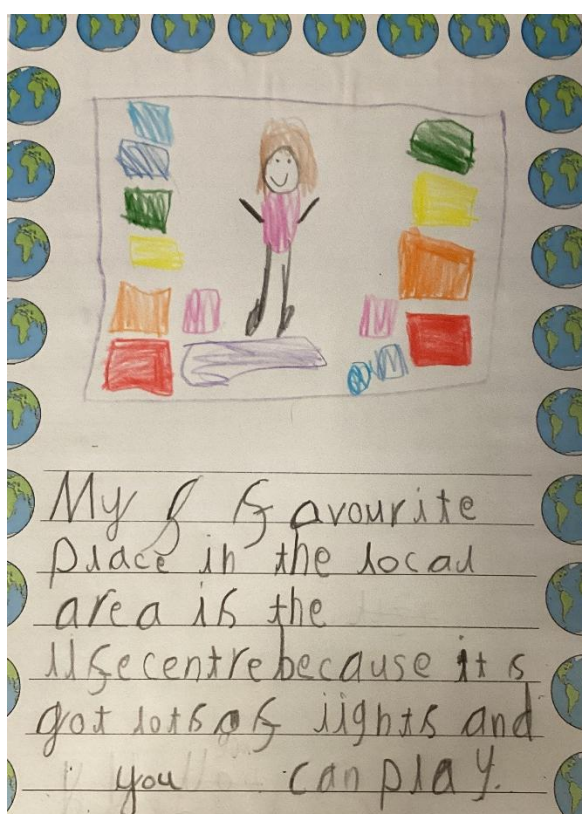 My f favourite
place in the local
area is the
lifecentre because it s
got lots of lights and
you can play.